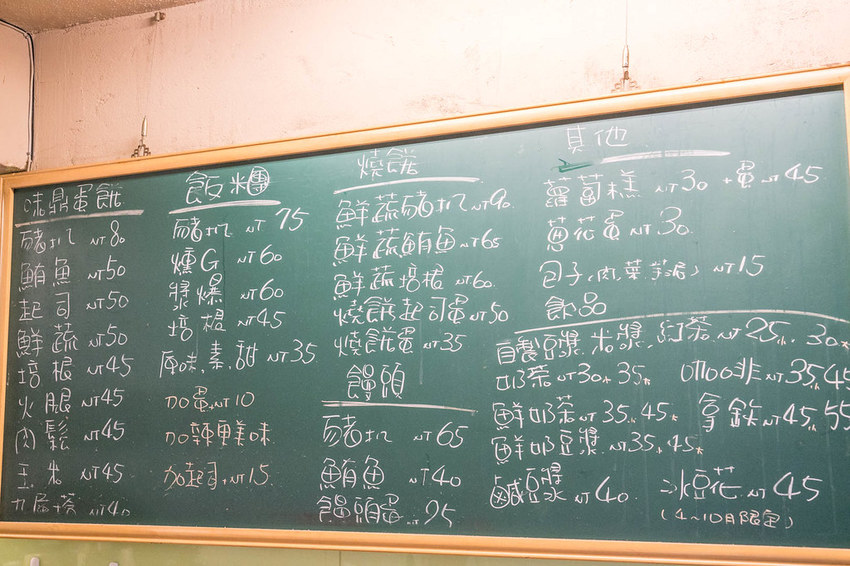 味鼎蛋餅
豬扒 NT 80
鮪魚 NT50
起司 NT50
鮮蔬 NT50
培根 NT45
火腿 NT45
肉鬆 NT45
玉米 NT45
九層塔 NT40
飯米糰
豬扒 NT 75
燻G NT60
漿爆 NT60
培根 NT45
原味.素.甜 NT35
加蛋.NT10
加辣更美味
加起司.NT15.
燒餅
鮮蔬豬扒NT90.
鮮蔬鮪魚NT65
鮮蔬培根 NT60.
燒餅起司蛋NT50
燒餅蛋NT35
饅頭
豬扒 NT65
鮪魚 NT40
饅頭蛋 NT25
其他
蘿蔔糕 NT30 +蛋NT45
蔥花蛋 NT30.
包子(肉.菜.芋泥) NT15
飲品
自製豆漿.米漿.紅茶.NT25小.30大
奶茶 NT30小.35大 咖啡.NT35小45
鮮奶茶NT35.45大 拿鉄NT45小55
鮮奶豆漿.NT35.45大
鹹豆漿 NT40 冰豆花NT45
(4~10月限定)